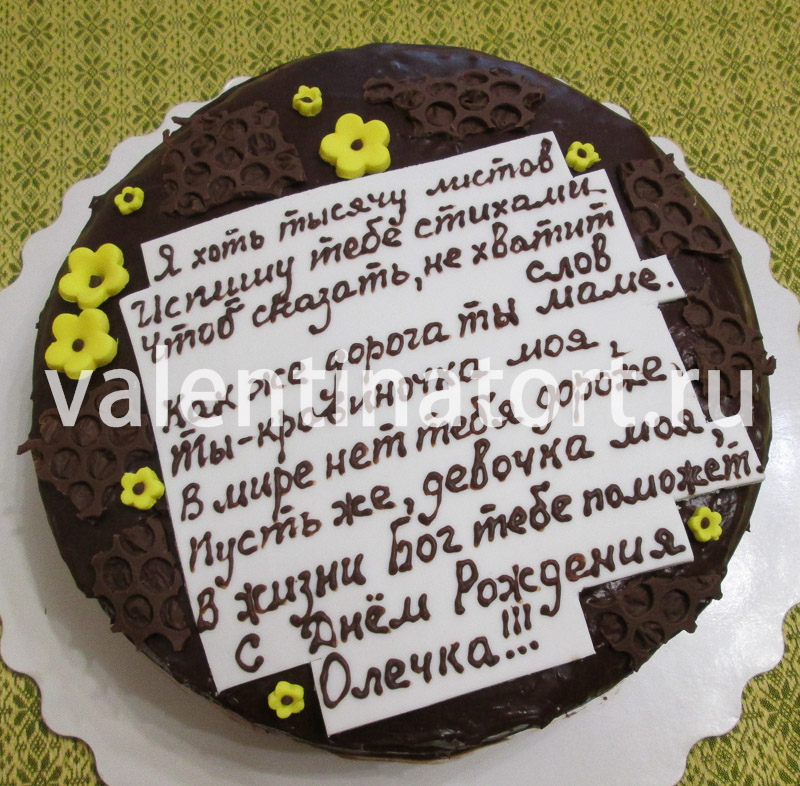 Я хоть тысячу листов
Испишу тебе стихами
Чтоб сказать, не хватит
слов
Как же дорога ты маме.
Ты-кровиночка моя,
В мире нет тебя дороже,
Пусть же, девочка моя,
В жизни Бог тебе поможет.
С Днём Рождения
Олечка!!!
valentinatort.ru